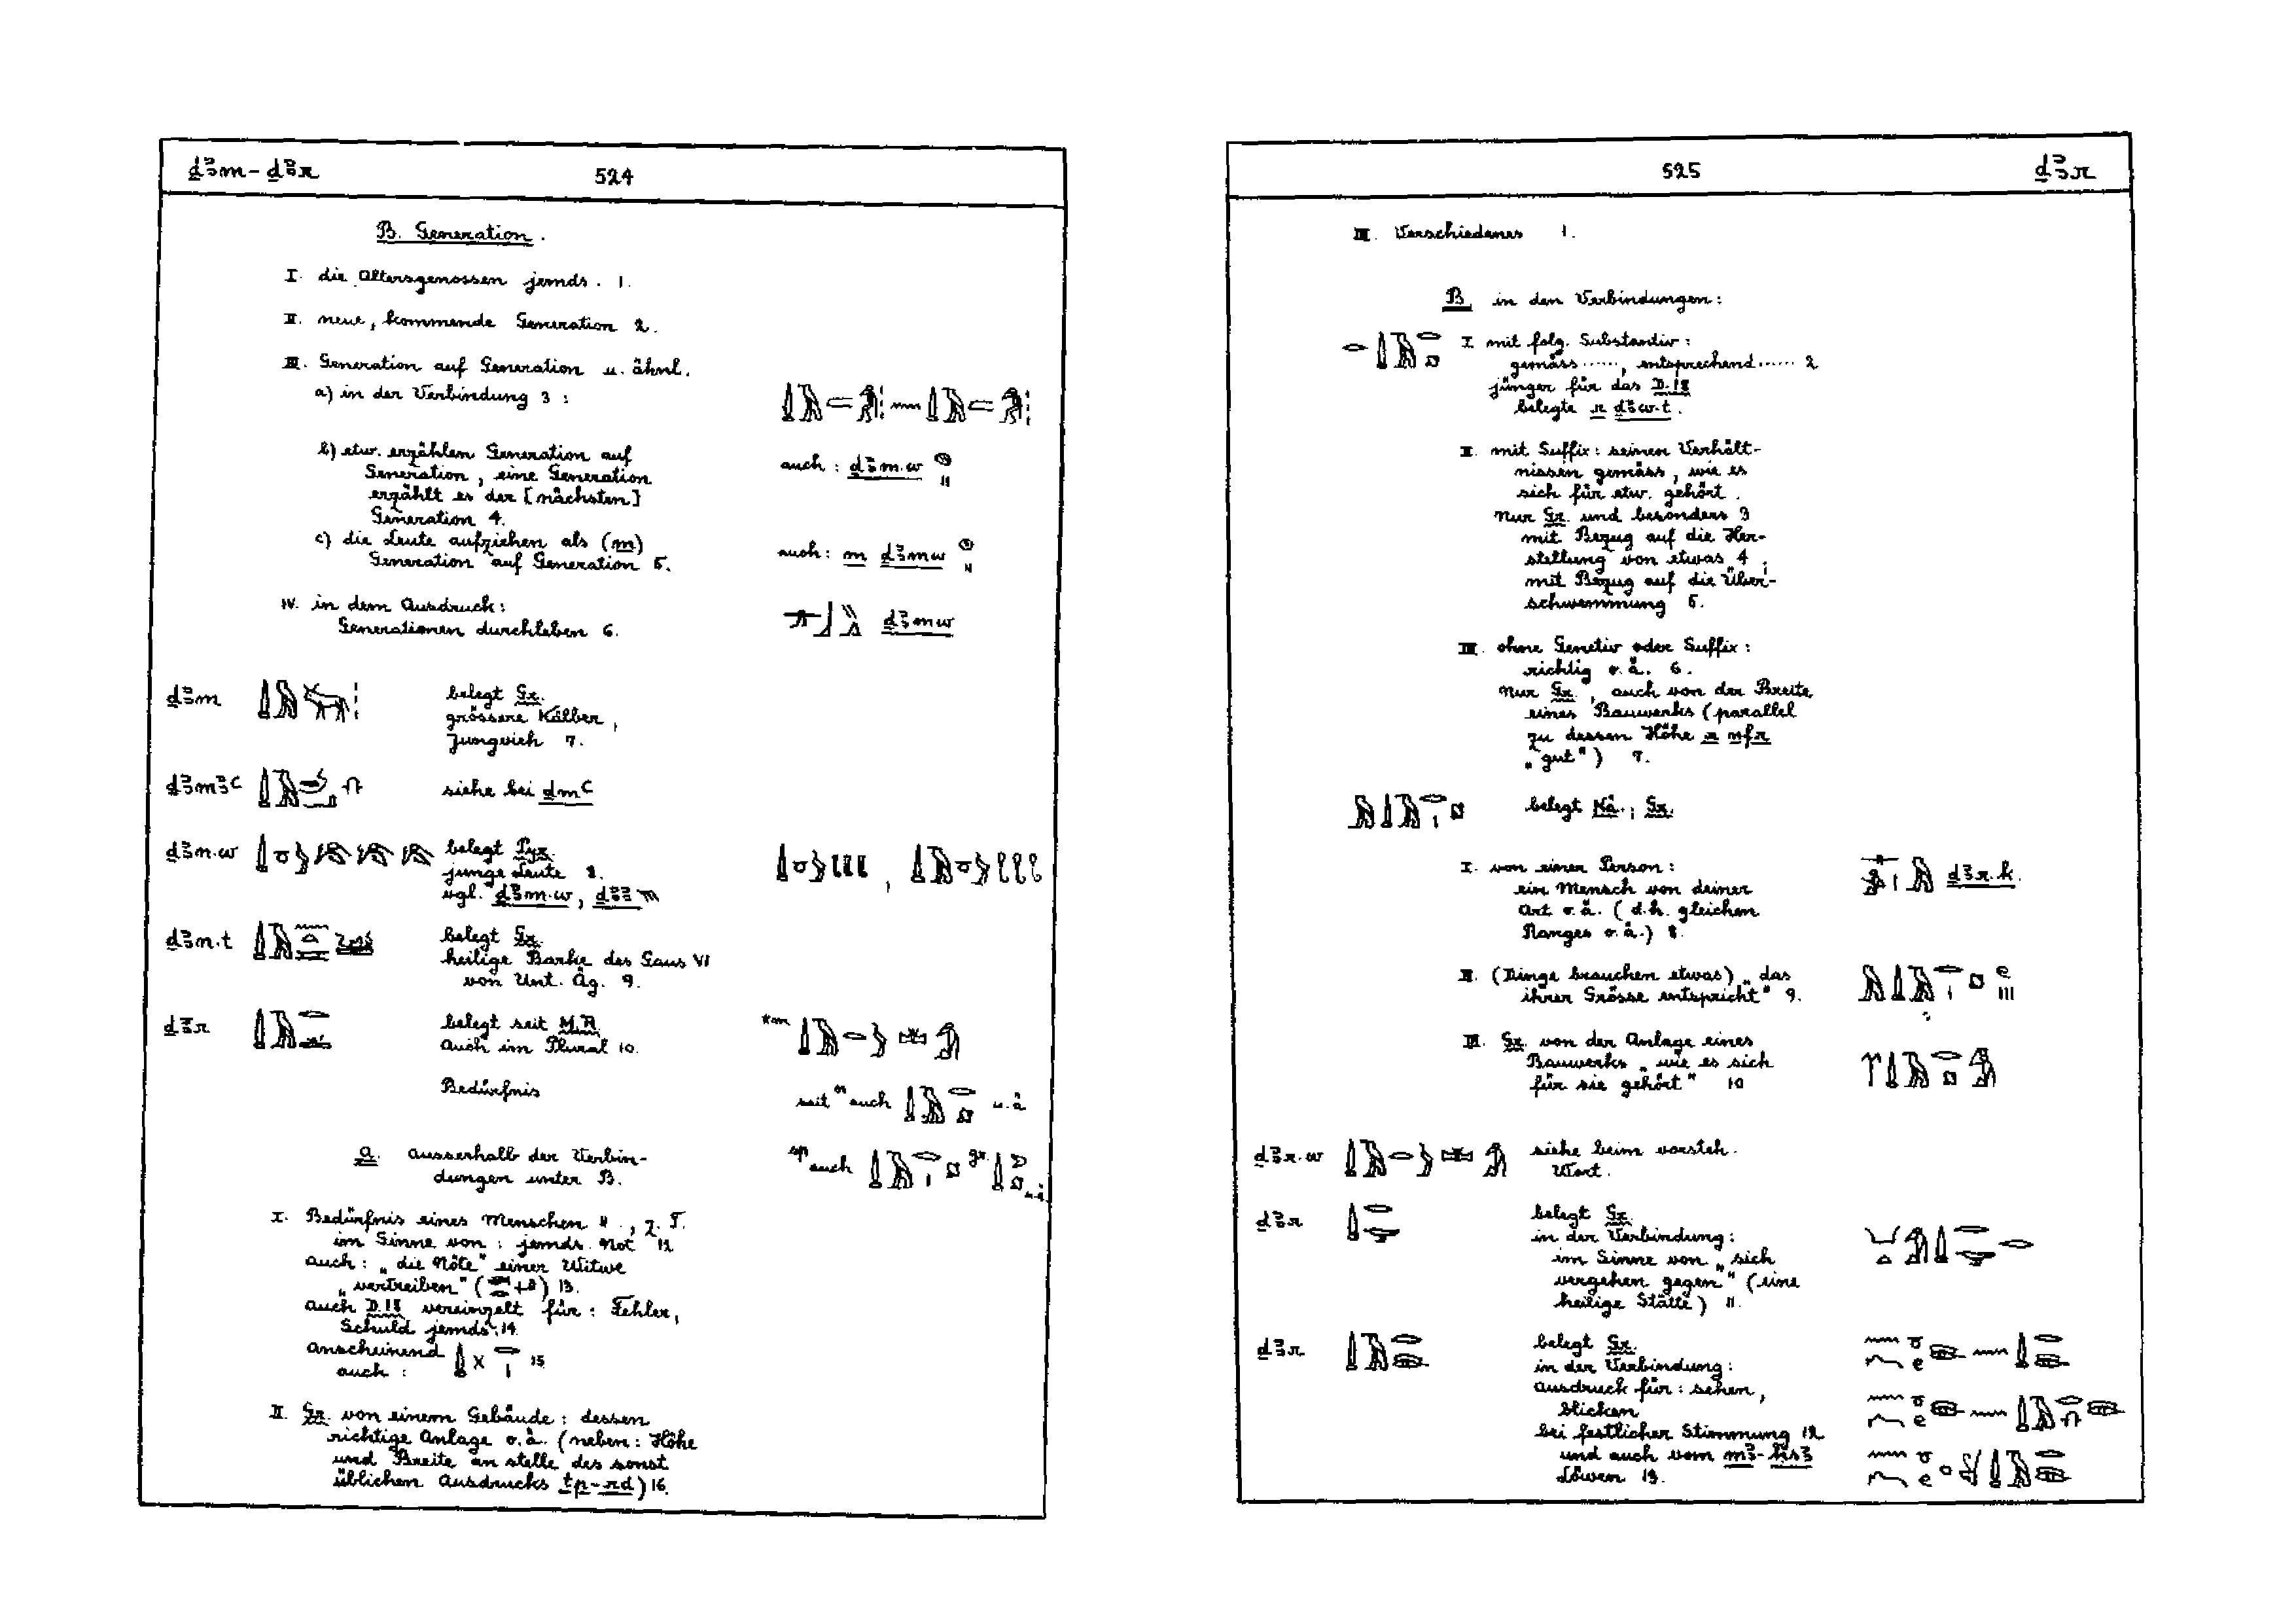 ḏꜣm - ḏꜣr
524
B. Generation.
I. die Altersgenossen jemds. 1.
II. neue, kommende Generation 2.
III. Generation auf Generation u. ähnl.
a) in der Verbindung 3 :
b) etw. erzählen Generation auf
Generation, eine Generation
erzählt es der [nächsten]
Generation 4.
auch : ḏꜣm.w
c) die Leute aufziehen als (m)
Generation auf Generation 5.
auch : m ḏꜣmw
IV. in dem Ausdruck:
Generationen durchleben 6.
ḏꜣmw
ḏꜣm
belegt Gr.
grössere Kälber,
Jungvieh 7.
ḏꜣmꜣꜥ
siehe bei dmꜥ
ḏꜣn.w
belegt Pyr.
junge Leute 8.
vgl. ḏꜣm.w, ḏꜣꜣ
ḏꜣn.t
belegt Gr.
heilige Barke des Gaus VI
von Unt. Äg. 9.
ḏꜣr
belegt seit M.R.
Auch im Plural 10.
Bedürfnis
seit auch u.ä
Sp auch gr. u.ä.
A. ausserhalb der Verbin-
dungen unter B.
I. Bedürfnis eines Menschen 11., z.T.
im Sinne von : jemds. Not 12
auch : „die Nöte" einer Witwe
„vertreiben" ( ) 13.
auch D.18 vereinzelt für : Fehler,
Schuld jemds. 14.
anscheinend
auch : 15
II. Gr. von einem Gebäude : dessen
richtige Anlage o.ä. (neben : Höhe
und Breite an stelle des sonst
üblichen Ausdrucks tp-rd) 16.
525
ḏꜣr
III. Verschiedenes 1.
B in den Verbindungen :
I mit folg. Substantiv :
gemäss ......, entsprechend ...... 2
jünger für das D.18
belegte r ḏꜣw.t.
II. mit Suffix : seinen Verhält-
nissen gemäss, wie es
sich für etw. gehört.
nur Gr. und besonders 3
mit Bezug auf die Her-
stellung von etwas 4 ;
mit Bezug auf die Über-
schwemmung 5.
III. ohne Genetiv oder Suffix :
richtig o.ä. 6.
nur Gr., auch von der Breite
eines Bauwerks (parallel
zu dessen Höhe r nfr
„gut") 7.
belegt Nä. ; Gr.
I. von einer Person :
ein Mensch von deiner
Art o.ä. (d.h. gleichen
Ranges o.ä.) 8.
ḏꜣr.k.
II. (Dinge brauchen etwas) „das
ihrer Grösse entspricht" 9.
III. Gr. von der Anlage eines
Bauwerks „wie es sich
für sie gehört" 10
ḏꜣr.w
siehe beim vorsteh.
Wort.
ḏꜣr
belegt Gr.
in der Verbindung :
im Sinne von „sich
vergehen gegen" (eine
heilige Stätte) 11.
ḏꜣr
belegt Gr.
in der Verbindung :
Ausdruck für : sehen,
blicken
bei festlicher Stimmung 12
und auch vom mꜣ-ḥsꜣ
Löwen 13.